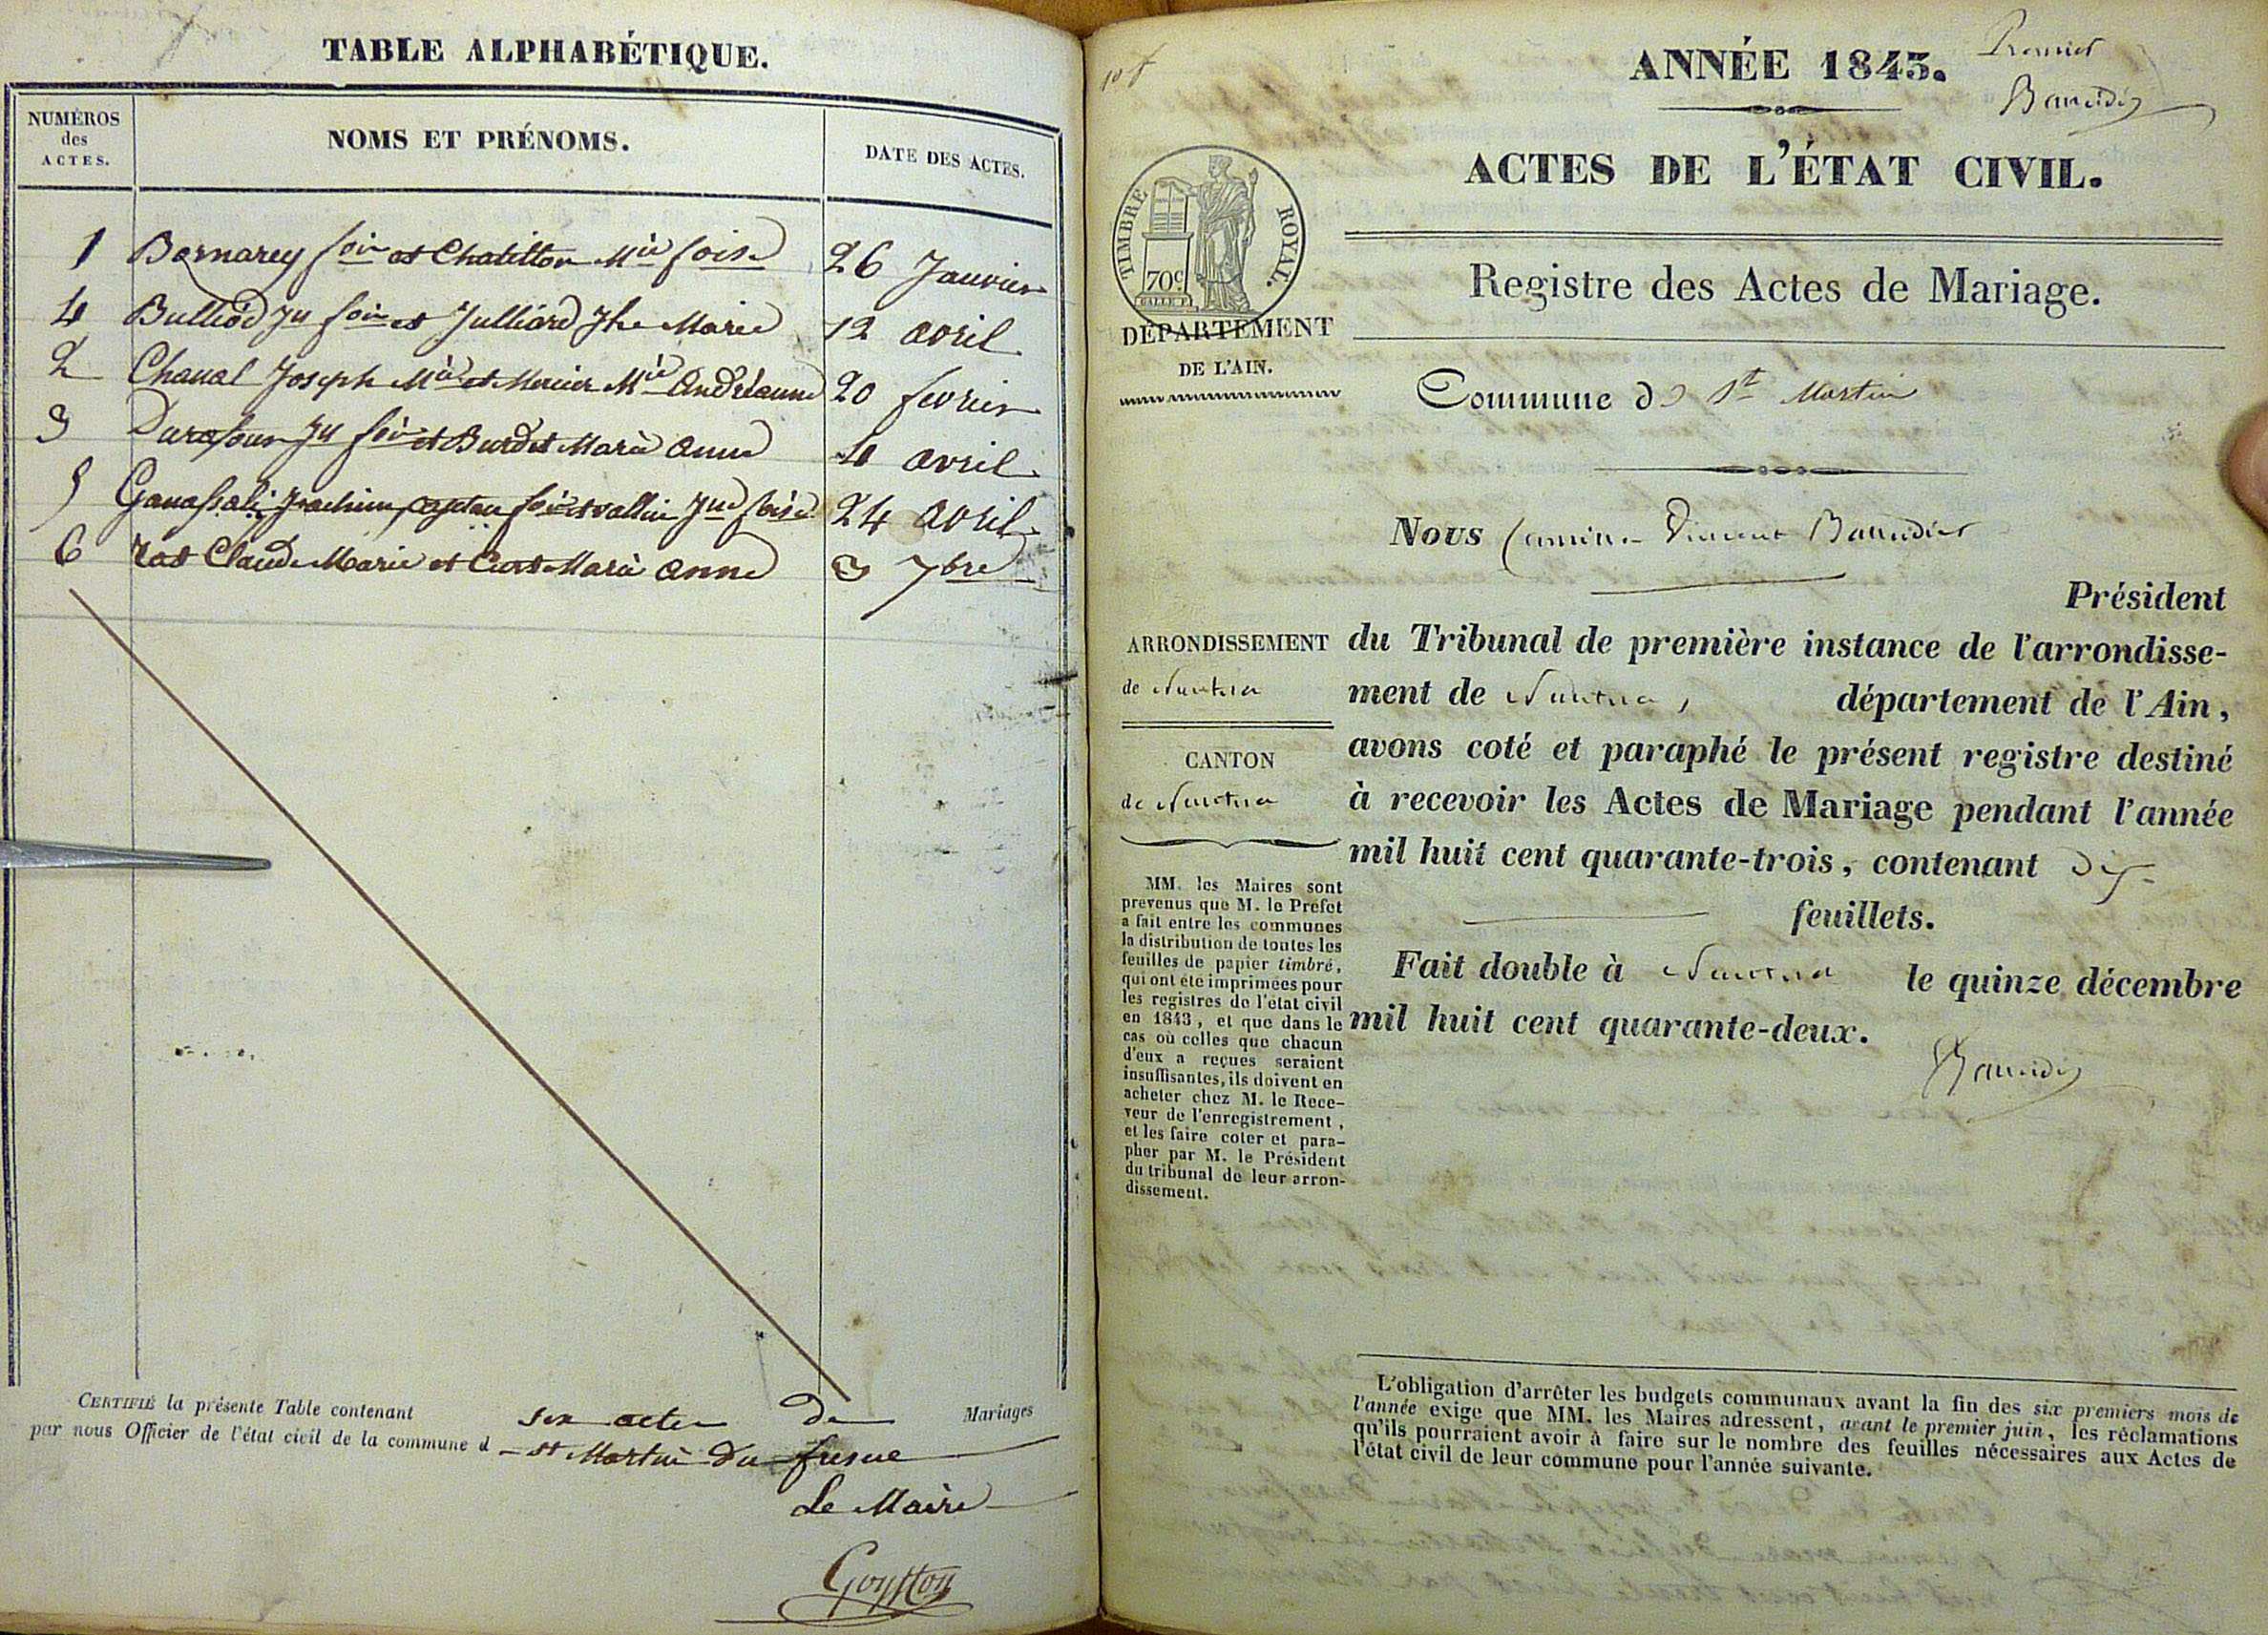 TABLE ALPHABÉTIQUE.
NUMÉROS
des
ACTES.
NOMS ET PRÉNOMS.
DATE DES ACTES.
1 Bernarey fois et Chatillon Mie foise 26 Janvier
4 Bulliod Jn fois et Julliard Jhe Marie 12 avril
2 Chanal Joseph Mie et Mercier Mie Andréanne 20 fevrier
3 Durafour Jn fois et Burdet Marie anne 4 avril
5 Joachim, fois et vallin Jne foise 24 avril
6 Claude Marie et Marie anne 3 7bre
CERTIFIÉ la présente Table contenant six actes de Mariages
par nous Officier de l'état civil de la commune d St Martin du fresne
Le Maire
Goyffon
ANNÉE 1843.
Premier
Baudier
ACTES DE L'ÉTAT CIVIL.
TIMBRE ROYAL.
70c
DÉPARTEMENT
DE L'AIN.
Registre des Actes de Mariage.
Commune de St Martin
Nous Vincent
Président
ARRONDISSEMENT
de Nantua
CANTON
de Nantua
du Tribunal de première instance de l'arrondisse-
ment de Nantua, département de l'Ain,
avons coté et paraphé le présent registre destiné
à recevoir les Actes de Mariage pendant l'année
mil huit cent quarante-trois, contenant dix
feuillets.
Fait double à Nantua le quinze décembre
mil huit cent quarante-deux.
MM. les Maires sont
prévenus que M. le Préfet
a fait entre les communes
la distribution de toutes les
feuilles de papier timbré,
qui ont été imprimées pour
les registres de l'état civil
en 1843, et que dans le
cas où celles que chacun
d'eux a reçues seraient
insuffisantes, ils doivent en
acheter chez M. le Rece-
veur de l'enregistrement,
et les faire coter et para-
pher par M. le Président
du tribunal de leur arron-
dissement.
L'obligation d'arrêter les budgets communaux avant la fin des six premiers mois de
l'année exige que MM. les Maires adressent, avant le premier juin, les réclamations
qu'ils pourraient avoir à faire sur le nombre des feuilles nécessaires aux Actes de
l'état civil de leur commune pour l'année suivante.